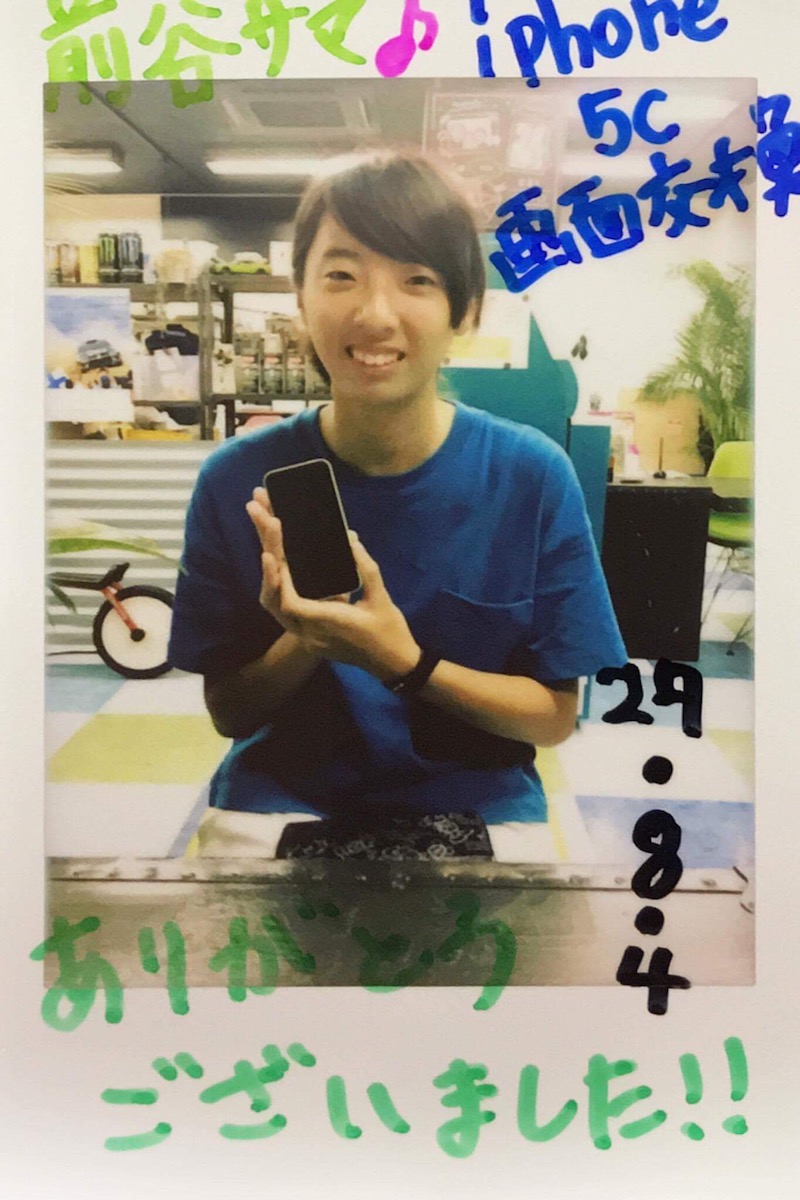 前谷サマ♪
iphone
5C
画面交換
29.8.4
ありがとう
ございました!!